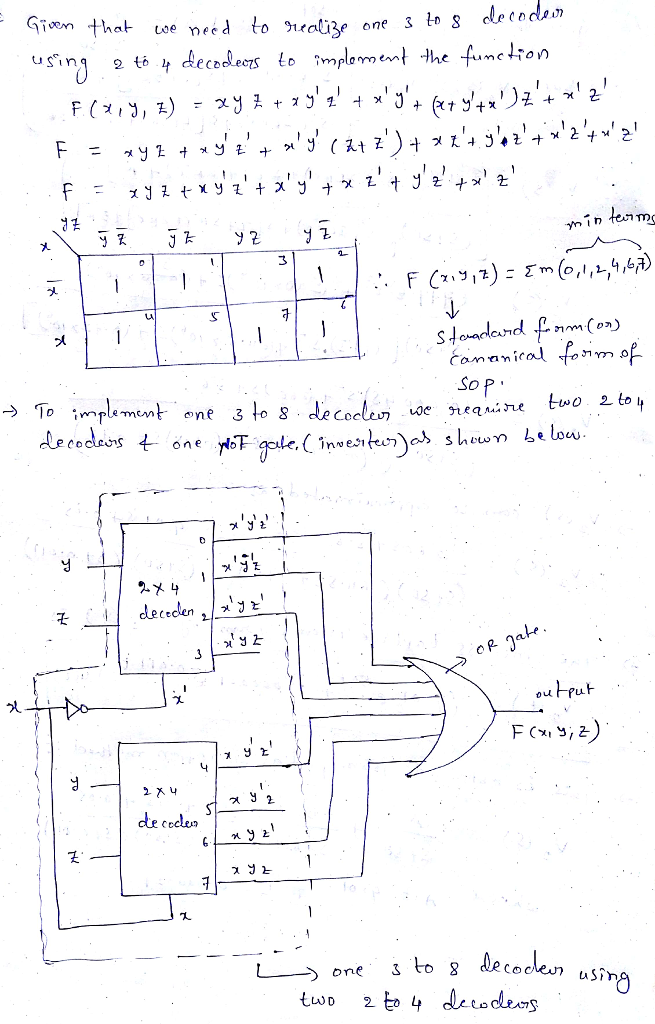 Given that we need to realize one 3 to 8 decoder
using 2 to 4 decoders to implement the function
F(x,y,z) = xyz + xy'z' + x'y' + (x+y'+x')z' + x'z'
F = xyz + xy'z' + x'y'(z+z') + xz' + y'z' + x'z' + x'z'
F = xyz + xy'z' + x'y' + xz' + y'z' + x'z'
yz
x
ȳz̄ ȳz yz yz̄
x̄ 0 1 1 1 3 2 1
x 4 1 5 7 1 6 1
min terms
∴ F(x,y,z) = Σm(0,1,2,4,6,7)
↓
standard form (or)
canonical form of
SOP.
→ To implement one 3 to 8 decoder we require two 2 to 4
decoders & one NOT gate, (inverter) as shown below.
y
z
2x4
decoder
0 x'y'z'
1 x'y'z
2 x'yz'
3 x'yz
x
x'
OR gate.
output
F(x,y,z)
y
z
2x4
decoder
4 xy'z'
5 xy'z
6 xyz'
7 xyz
x
→ one 3 to 8 decoder using
two 2 to 4 decoders